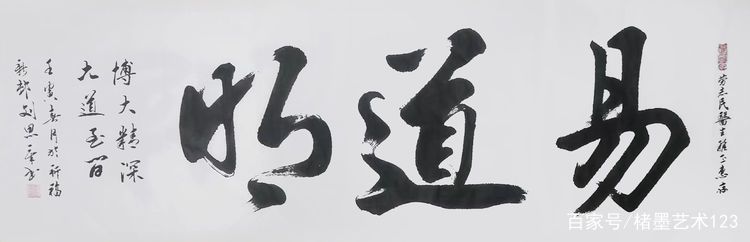 劳志民醫生雅正惠存
易道明
博大精深
大道至简
壬寅春月於祈福
新邨刘思书
百家号/楮墨艺术123